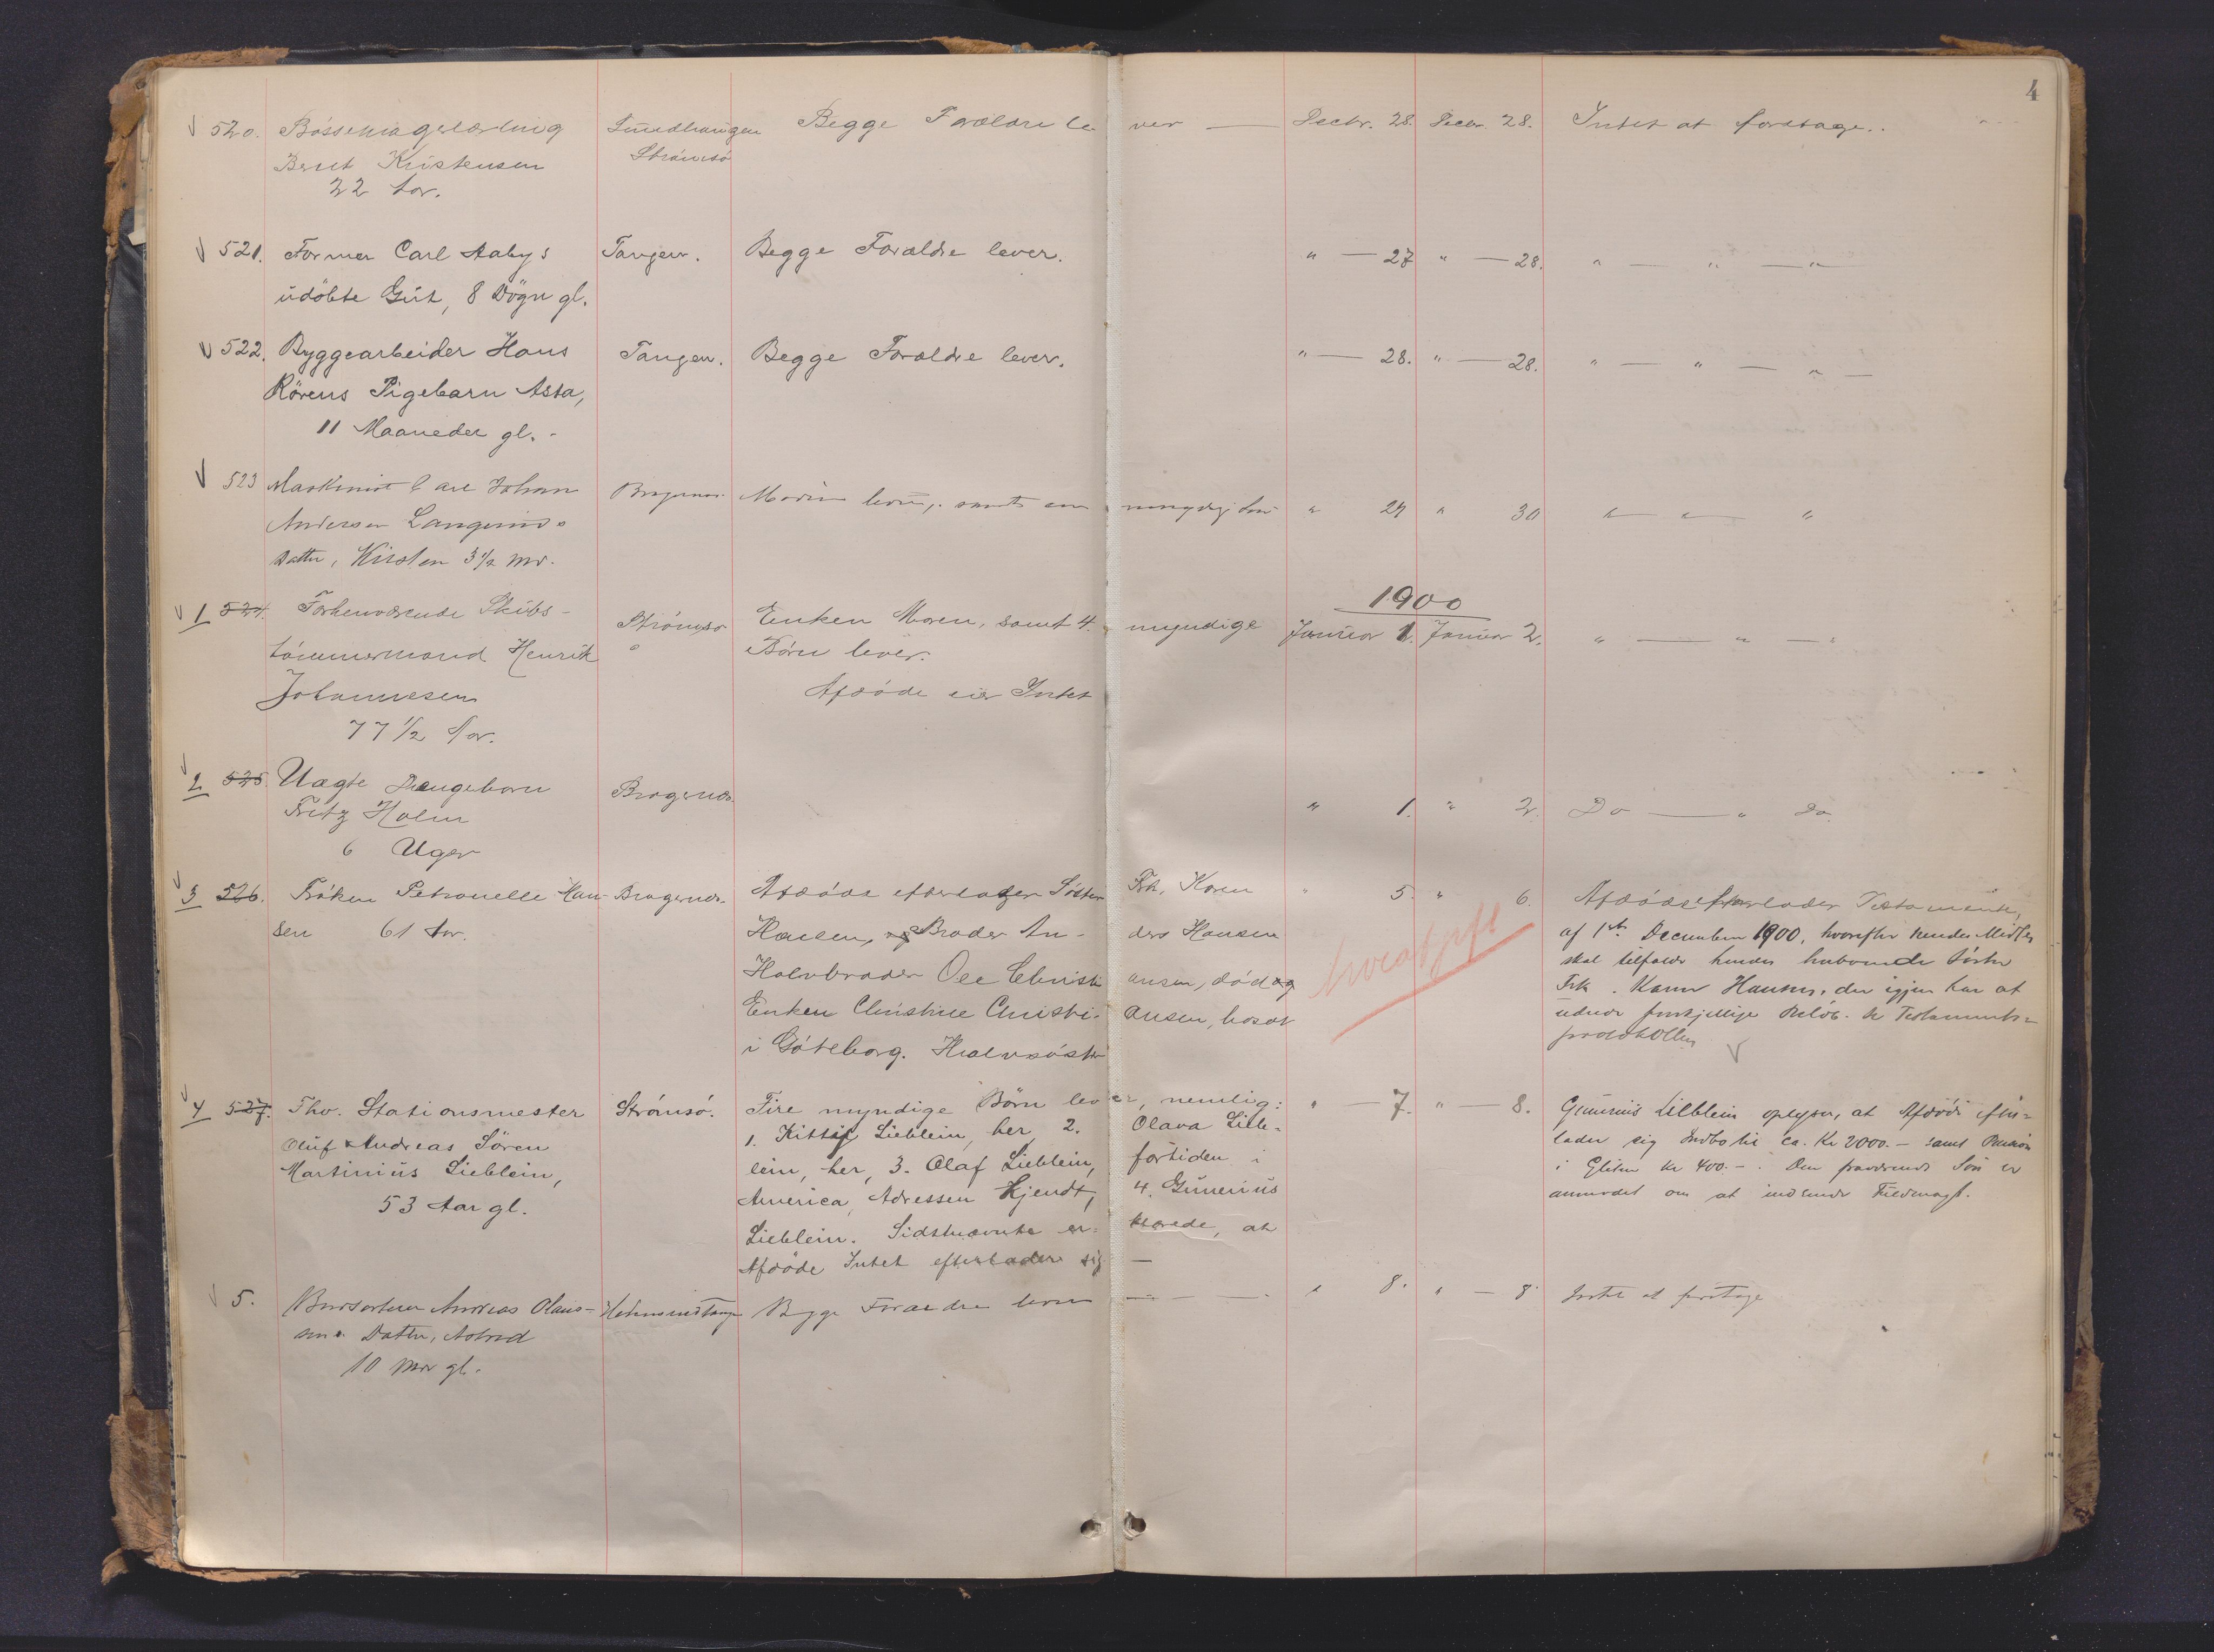 4
520. Bössemagerlærling Smedhaugen Begge Forældre lever — Decbr. 28. Decbr. 28. Intet at foretage.
Beret Kristensen Strömsö
22 Aar.
521. Former Carl Aabys Tangen. Begge Forældre lever. " — 27 " — 28. " — " — "
udöbte Gut, 8 Dögn gl.
522. Byggearbeider Hans Tangen. Begge Forældre lever. " — 28. " — 28. " — " — " —
Rörens Pigebarn Asta,
11 Maaneder gl. -
523 Maskinist Carl Johan Bragernes Moren lever, samt en myndig " 29 " 30 " — " — "
Andersen Langerud s
Datter, Kirsten 3 1/2 Md.
1900
1 524. Forhenværende Skibs- Strömsö Enken Maren, samt 4. myndige Januar 1. Januar 2. " — " — "
tömmermand Henrik Börn lever.
Johannesen Afdöde eier Intet
77 1/2 Aar.
2 525 Uægte Drengebarn Bragernes " 1. " 2. Do — " Do.
Fritz Holm
6 Uger
3 526. Fröken Petronelle Han- Bragernes. Afdöde efterlader Söster Frk. Karen " 5. " 6. Afdöde efterlader Testamente,
sen 61 Aar. Hansen, og Broder An- ders Hansen af 1ste December 1900, hvorefter hendes Midler
Halvbroder Ole Christi ansen, död og skal tilfalde hendes Söster
Enken Christine Christi- ansen, bosat Frk. Karen Hansen, der igjen har at
i Göteborg. Halvsöster udrede forskjellige Belöb. Se Testaments-
protokollen
4 527. Fhv. Stationsmester Strömsö. Fire myndige Börn lever, nemlig: " — 7. " — 8. Gunerius Lieblein oplyser, at Afdöde efter-
Oluf Andreas Sören 1. Kittil Lieblein, her, 2. Olava Lieb- lader sig Indbo til ca. Kr 2000.- samt Pension
Martinius Lieblein, lein, her, 3. Olaf Lieblein, fortiden i i Kr 400.-. Den Sön er
53 Aar gl. America, Adressen kjendt, 4. Gunerius anmodet om at indsende Fuldmagt.
Lieblein. Sidstnævnte er- klærede, at
Afdöde Intet efterlader sig —
5. Andreas Olaus- Begge Forældre lever — — — " 8. " — 8. Intet at foretage
sens Datter, Astrid
10 Mdr gl.